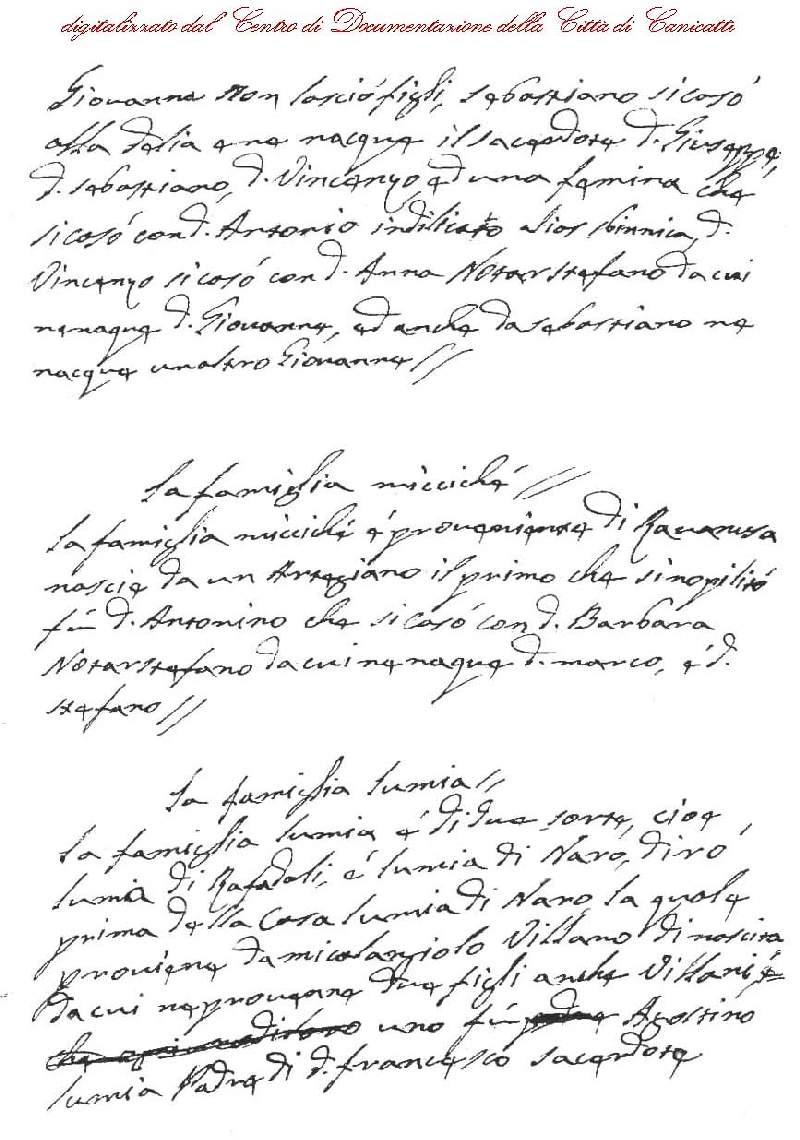 digitalizzato dal Centro di Documentazione della Città di Canicattì
Giovanne non lasciò figli, sebastiano si casò
alla delia e ne nacque il sacerdote d. Giuseppe,
d. sebastiano, d. Vincenzo ed una femina che
si casò con d. Antonio indilicato d.
Vincenzo si casò con d. Anna Notarstefano da cui
ne naque d. Giovanne, ed anche da sebastiano ne
nacque un altro Giovanne //
La famiglia miccichè //
La famiglia miccichè è proveniente di Ravanusa
nascie da un Artegiano il primo che si nopilitò
fù d. Antonino che si casò con d. Barbara
Notarstefano da cui ne naque d. marco, è d.
stefano //
La famiglia lumia //
La famiglia lumia è di due sorte, cioe
lumia di Rafadali, è lumia di Naro, dirò
prima della Casa lumia di Naro la quale
proviene da micolangiolo Villano di nascita
da cui ne provenne due figli anche Villani
uno fù Agostino
lumia Padre di d. francesco sacerdote